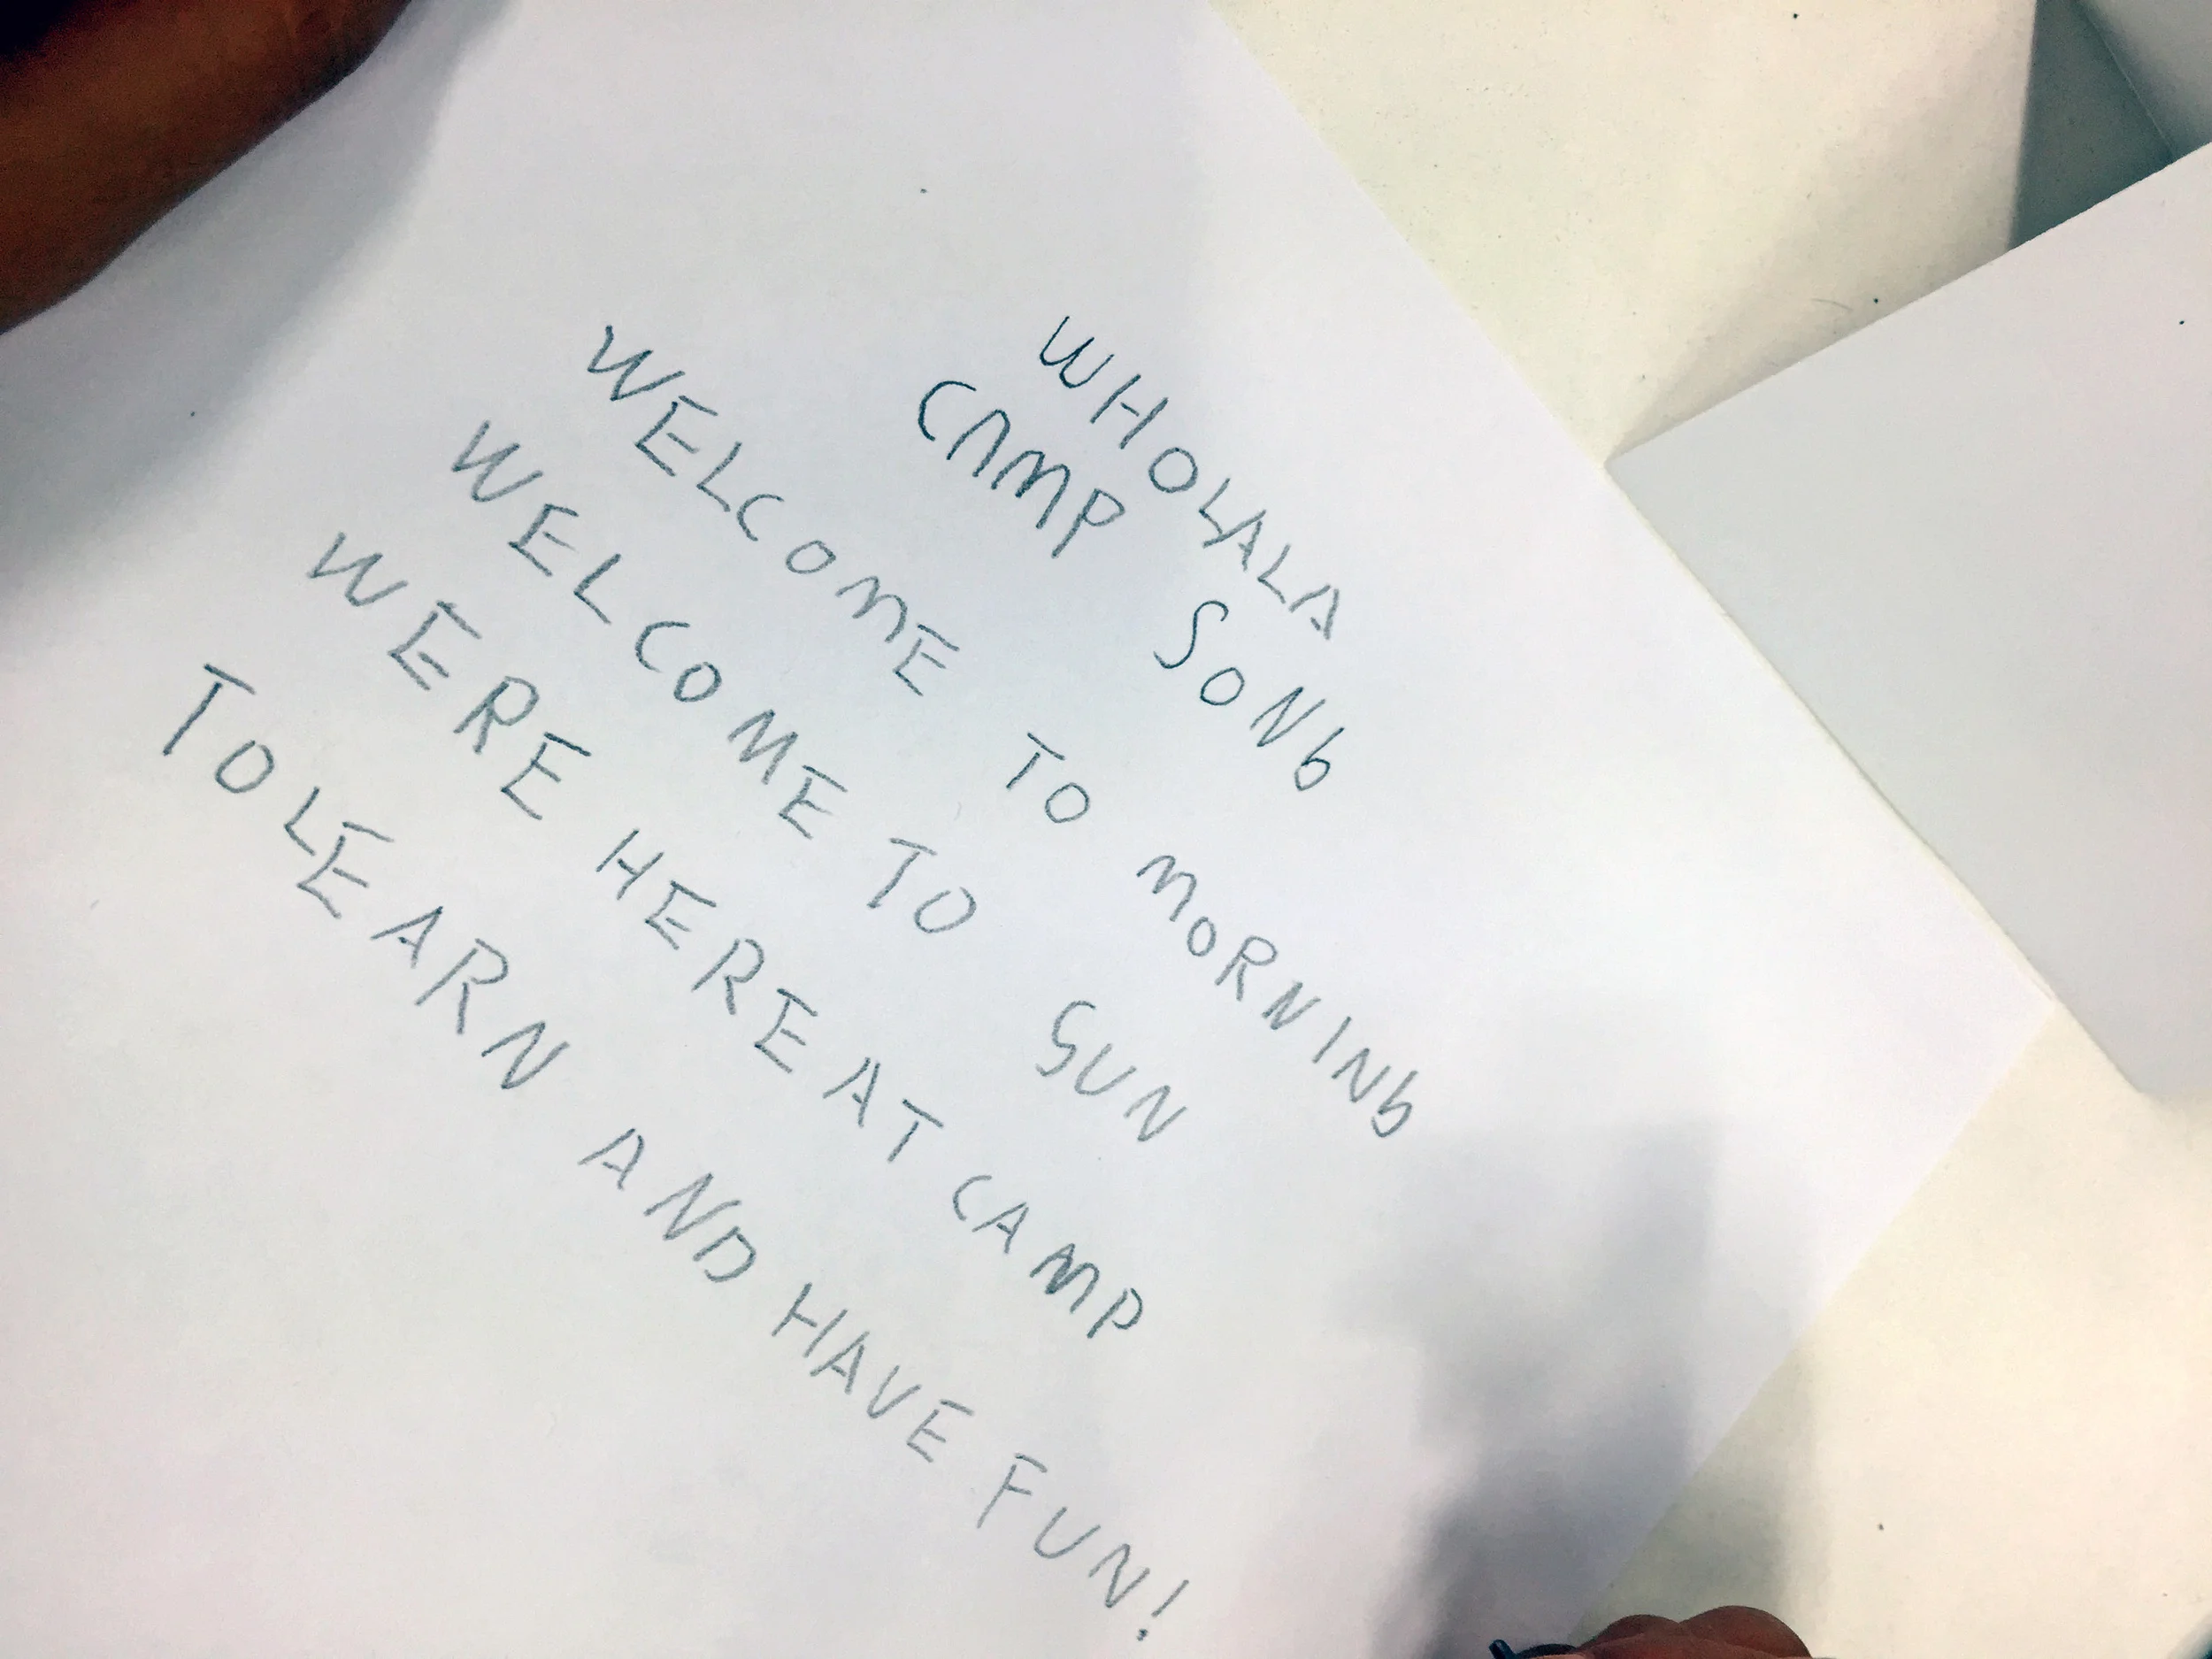 WHOLALA
CAMP SONG
WELCOME TO MORNING
WELCOME TO SUN
WERE HERE AT CAMP
TO LEARN AND HAVE FUN!